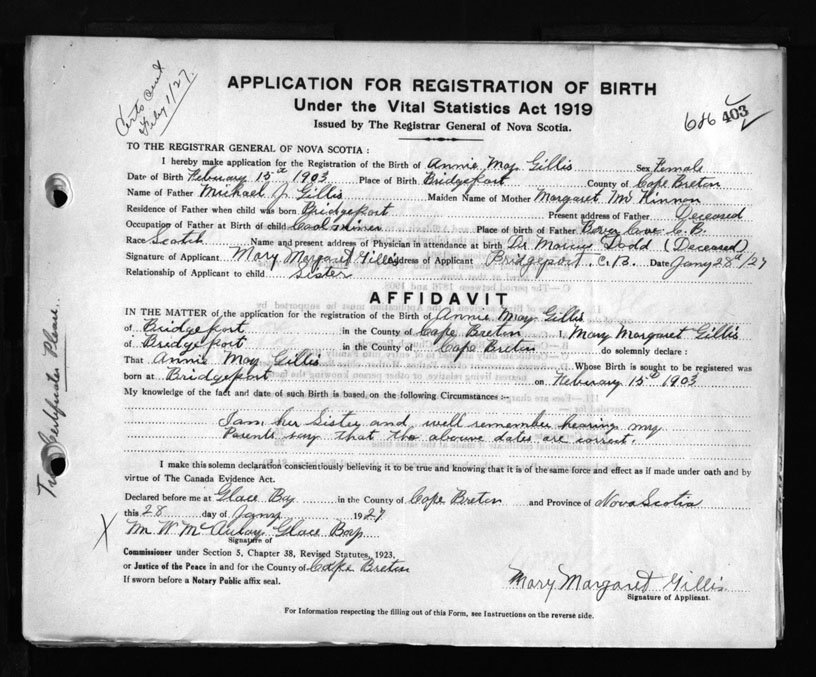 Certs sent
Feby 1/27.
APPLICATION FOR REGISTRATION OF BIRTH
Under the Vital Statistics Act 1919
Issued by The Registrar General of Nova Scotia.
686 403
TO THE REGISTRAR GENERAL OF NOVA SCOTIA :
I hereby make application for the Registration of the Birth of Annie May Gillis Sex Female
Date of Birth February 15th 1903 Place of Birth Bridgeport County of Cape Breton
Name of Father Michael J. Gillis Maiden Name of Mother Margaret McKinnon
Residence of Father when child was born Bridgeport Present address of Father Deceased
Occupation of Father at Birth of child Coal miner Place of birth of Father Cove C.B.
Race Scotch Name and present address of Physician in attendance at birth Dr Dodd (Deceased)
Signature of Applicant Mary Margaret Gillis Address of Applicant Bridgeport, C.B. Date Jany 28th/27
Relationship of Applicant to child Sister
AFFIDAVIT
IN THE MATTER of the application for the registration of the Birth of Annie May Gillis
of Bridgeport in the County of Cape Breton I, Mary Margaret Gillis
of Bridgeport in the County of Cape Breton do solemnly declare :
That Annie May Gillis Whose Birth is sought to be registered was
born at Bridgeport on February 15th 1903
My knowledge of the fact and date of such Birth is based on the following Circumstances :-
I am her Sister and well remember hearing my
Parents say that the above dates are correct.
I make this solemn declaration conscientiously believing it to be true and knowing that it is of the same force and effect as if made under oath and by
virtue of The Canada Evidence Act.
Declared before me at Glace Bay in the County of Cape Breton and Province of Nova Scotia
this 28 day of Jany 1927
X M. W. McAulay Glace Bay
Signature of
Commissioner under Section 5, Chapter 38, Revised Statutes, 1923,
or Justice of the Peace in and for the County of Cape Breton
If sworn before a Notary Public affix seal.
Mary Margaret Gillis
Signature of Applicant.
For Information respecting the filling out of this Form, see Instructions on the reverse side.
Two Certificates Please.